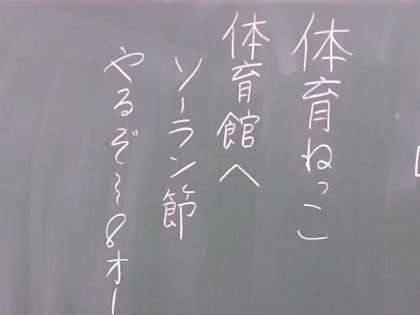 体育ねっこ
体育館へ
ソーラン節
やるぞ〜8オー